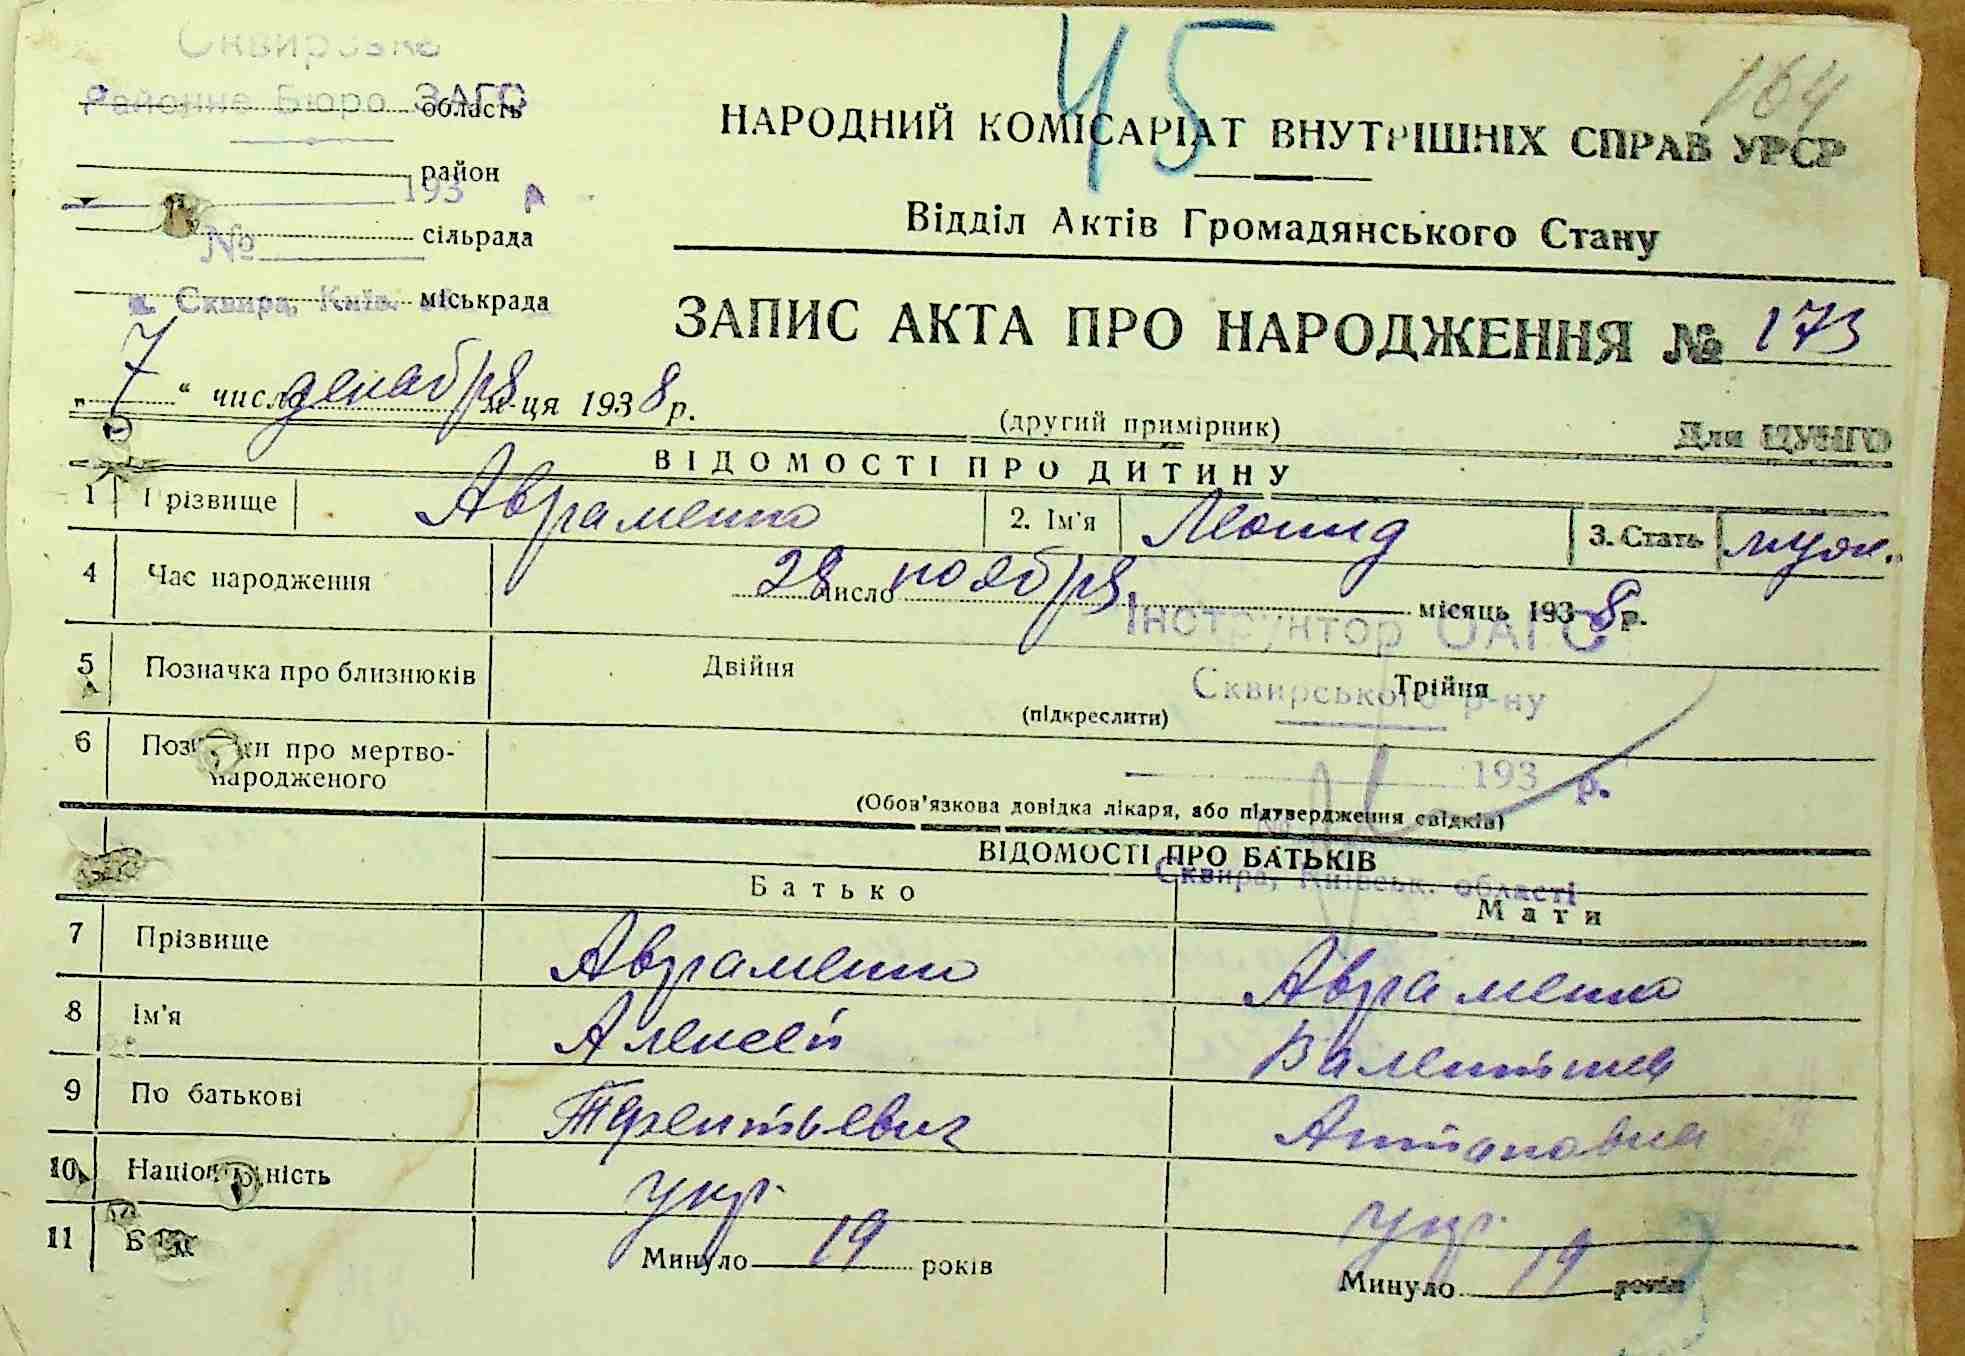 45
164
Сквирське
Районне Бюро ЗАГС
область
район
193 р
сільрада
№
м. Сквира, Київ.
міськрада
НАРОДНИЙ КОМІСАРІАТ ВНУТРІШНІХ СПРАВ УРСР
Відділ Актів Громадянського Стану
ЗАПИС АКТА ПРО НАРОДЖЕННЯ № 173
„7“ число декабря м-ця 1938 р.
(другий примірник)
Для ЦУНГО
ВІДОМОСТІ ПРО ДИТИНУ
1 Прізвище Авраменко 2. Ім'я Леонид 3. Стать муж.
4 Час народження 28 число ноября місяць 1938 р.
Інструктор ОАГС
5 Позначка про близнюків Двійня Трійня
Сквирського р-ну
(підкреслити)
6 Позначки про мертво-
народженого
193 р.
(Обов'язкова довідка лікаря, або підтвердження свідків)
№
ВІДОМОСТІ ПРО БАТЬКІВ
Сквира, Київськ. області
Батько Мати
7 Прізвище Авраменко Авраменко
8 Ім'я Алексей Валентина
9 По батькові Терентьевич Антоновна
10 Національність укр. укр.
11 Минуло 19 років Минуло 19 років